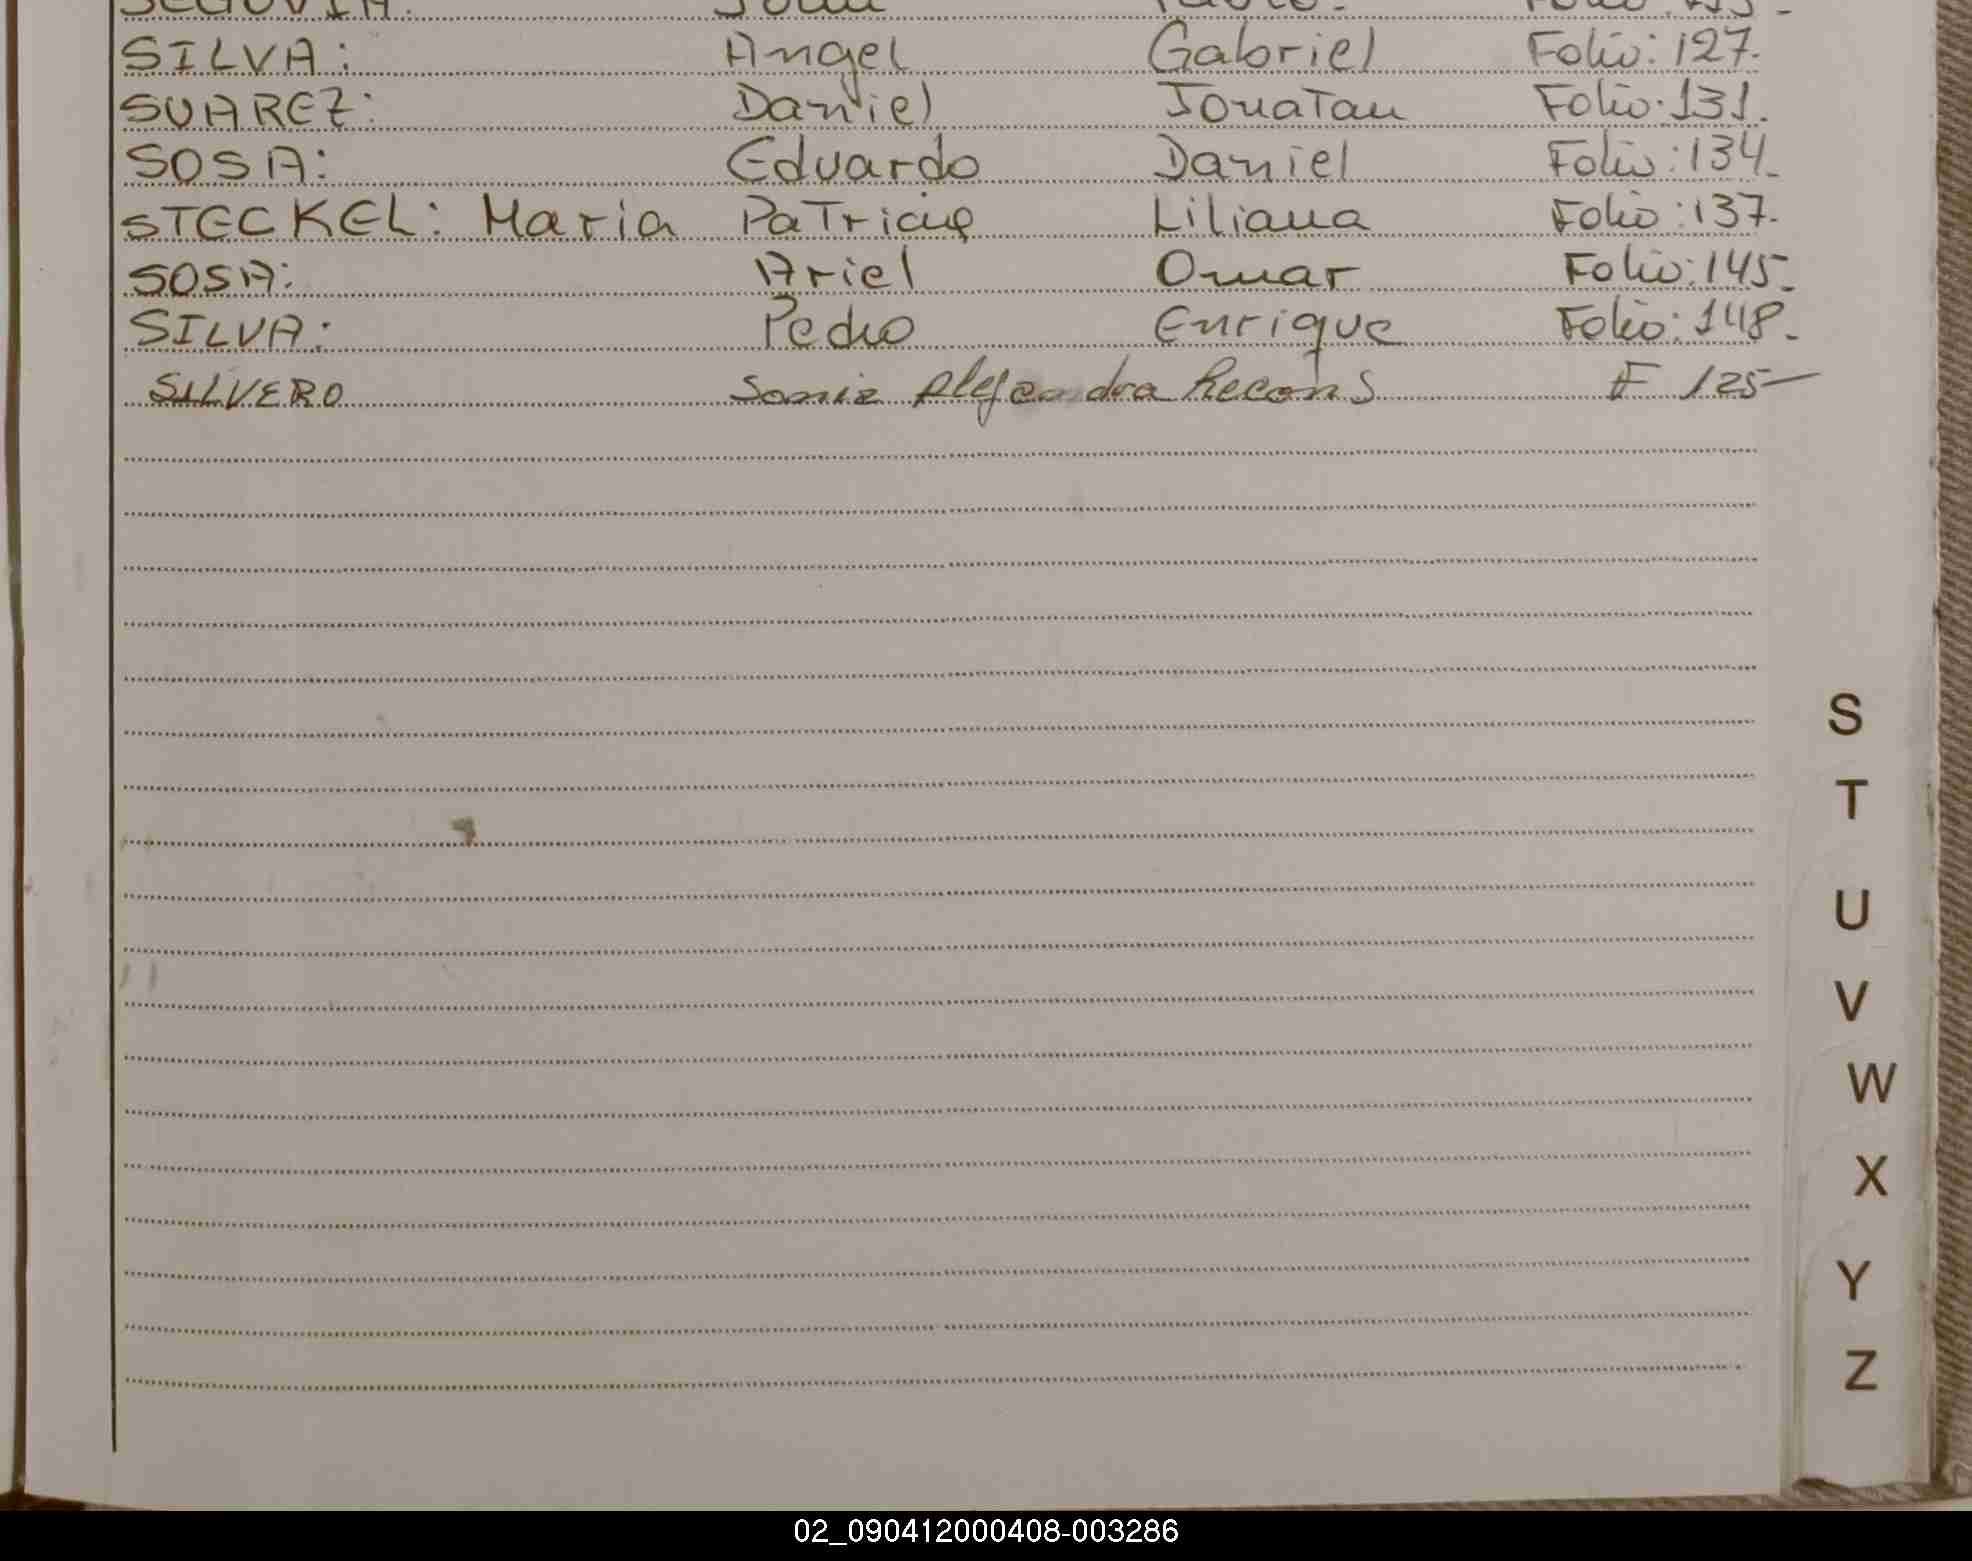 SEGOVIA:
SILVA: Angel Gabriel Folio: 127.
SUAREZ: Daniel Jonatan Folio: 131.
SOSA: Eduardo Daniel Folio: 134.
STECKEL: Maria Patricia Liliana Folio: 137.
SOSA: Ariel Omar Folio: 145.
SILVA: Pedro Enrique Folio: 148.
SILVERO Sonia Alejandra F 125
S
T
U
V
W
X
Y
Z
02_090412000408-003286